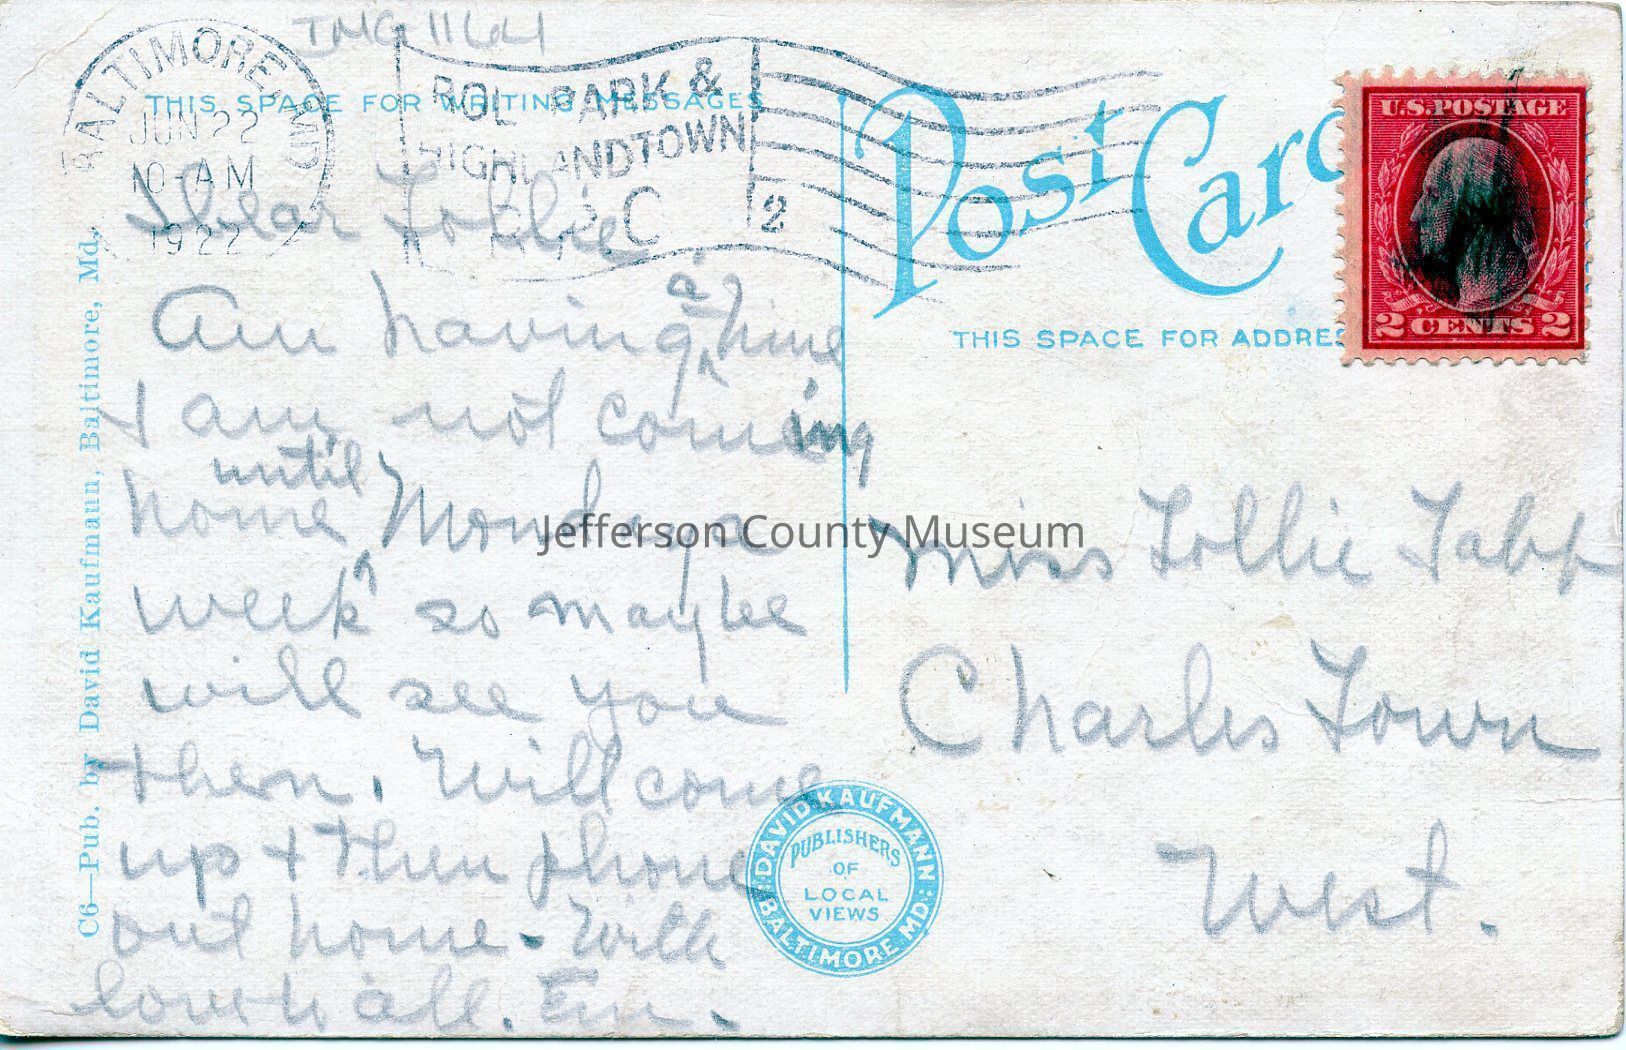 IMG 1164
BALTIMORE, MD
JUN 22
10-AM
1922
ROL. PARK &
HIGHLANDTOWN
2
THIS SPACE FOR WRITING MESSAGES
Post Card
THIS SPACE FOR ADDRES
U.S. POSTAGE
2 CENTS 2
C6—Pub. by David Kaufmann, Baltimore, Md.
Dear Tollie
Am having a time
I am not coming
home until Monday a
week so maybe
will see you
then. Will come
up + then phone
out home. With
love to all. Em.
Miss Tollie Tabb
Charles Town
West.
DAVID KAUFMANN
BALTIMORE MD.
PUBLISHERS
OF
LOCAL
VIEWS
Jefferson County Museum